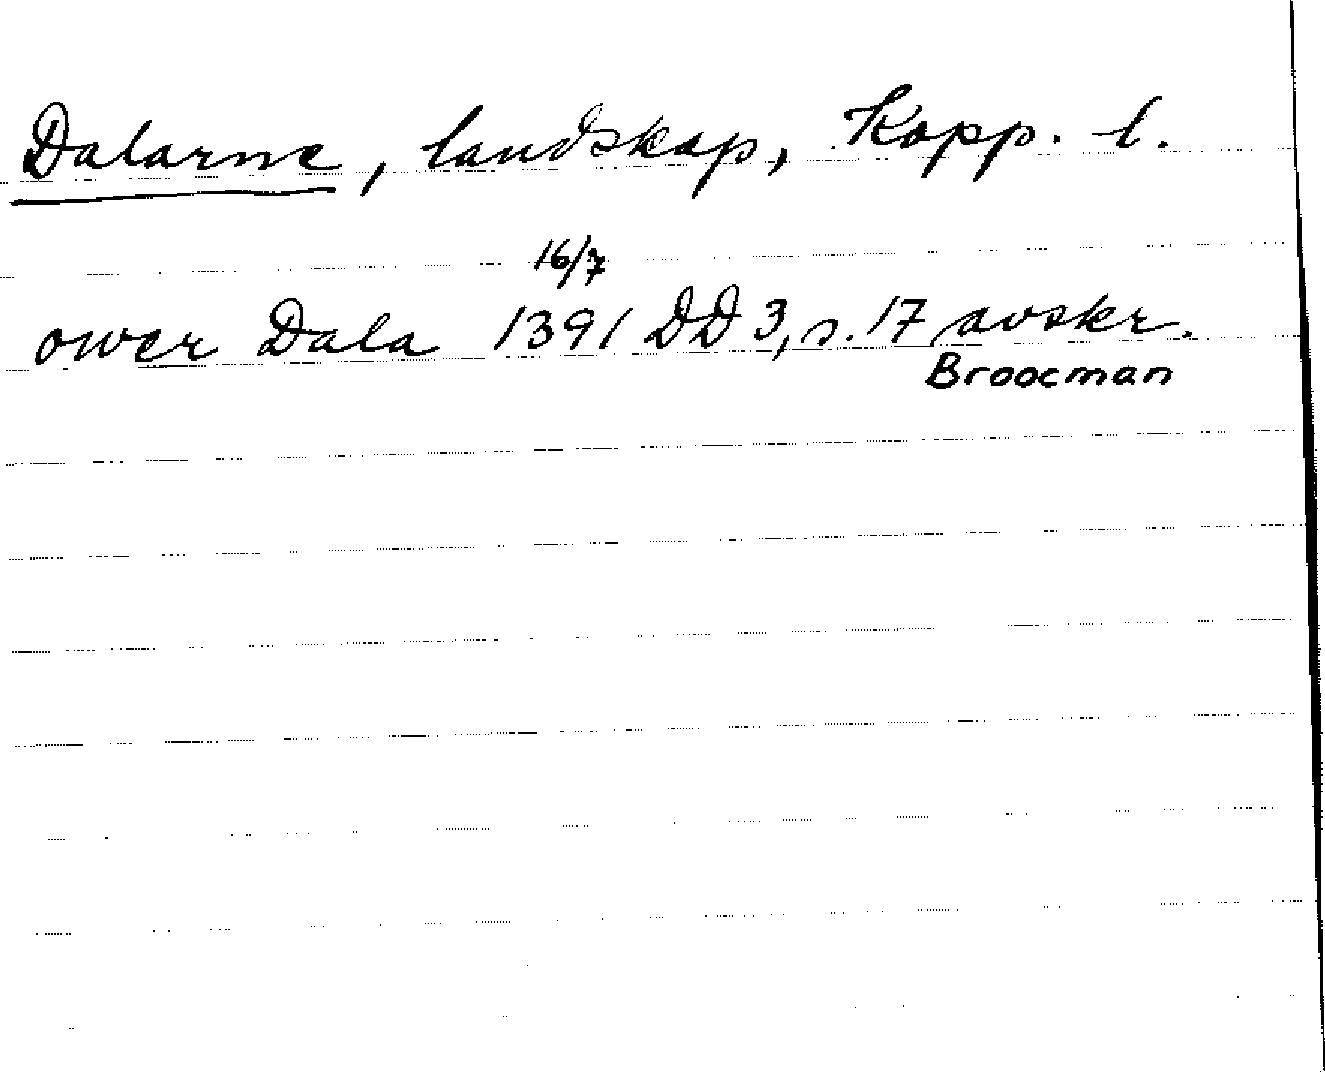 Dalarne, landskap, Kopp. l.
16/7
ower Dala 1391 DD 3, s. 17 avskr.
Broocman